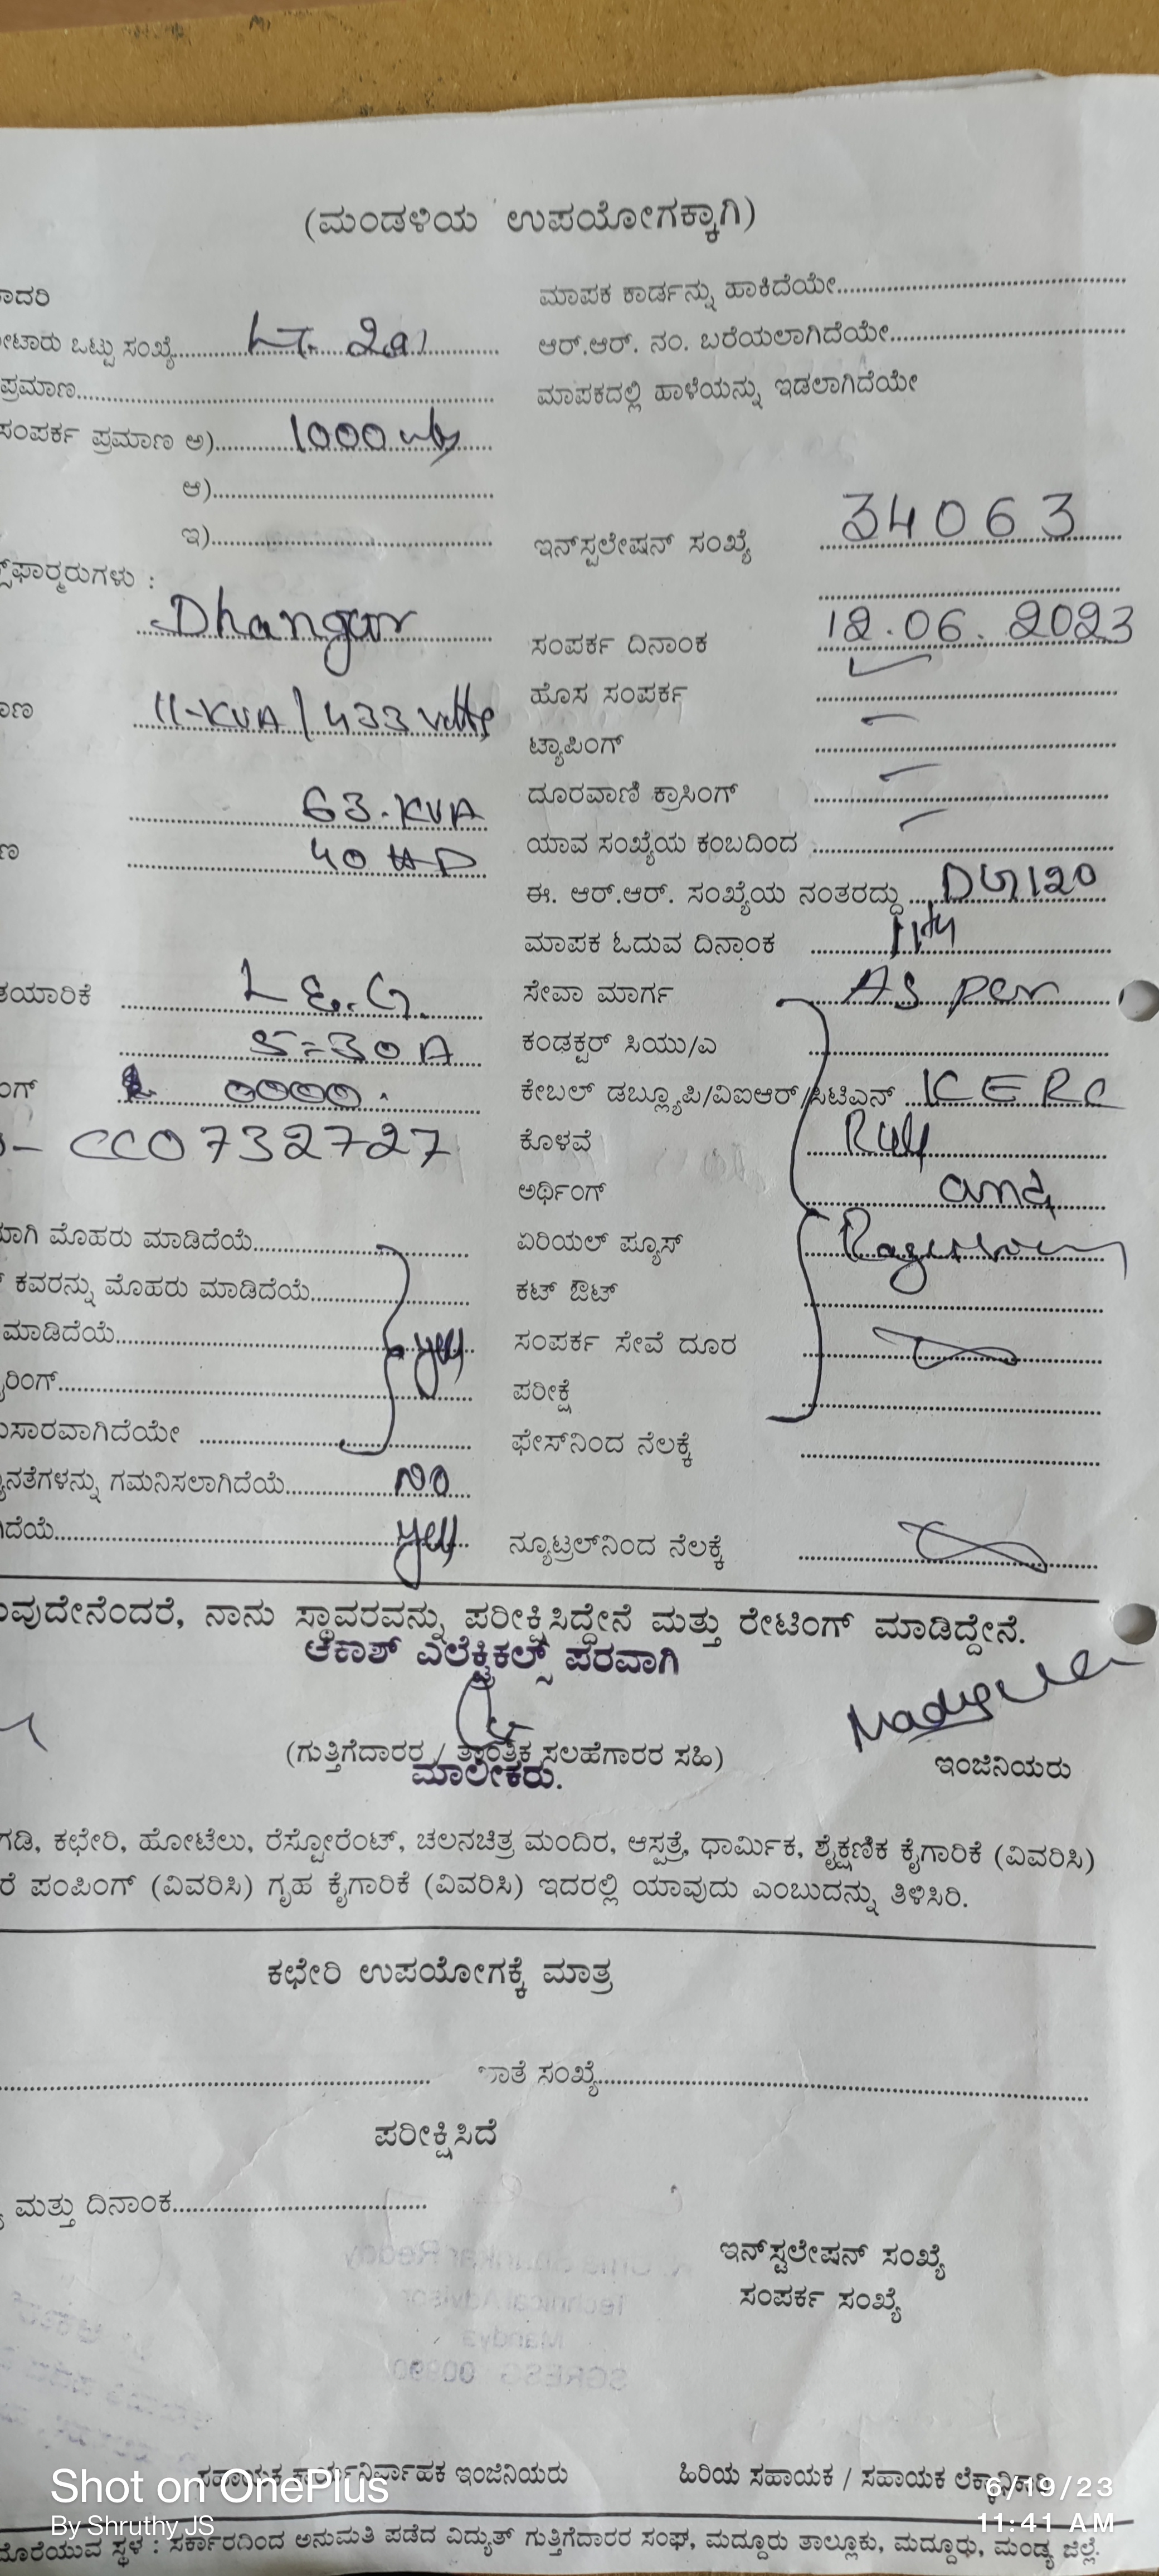 (ಮಂಡಳಿಯ ಉಪಯೋಗಕ್ಕಾಗಿ)
ಾದರಿ
ಮಾಪಕ ಕಾರ್ಡನ್ನು ಹಾಕಿದೆಯೇ
ೀಟಾರು ಒಟ್ಟು ಸಂಖ್ಯೆ LT. 2a1
ಆರ್.ಆರ್. ನಂ. ಬರೆಯಲಾಗಿದೆಯೇ
ಪ್ರಮಾಣ
ಮಾಪಕದಲ್ಲಿ ಹಾಳೆಯನ್ನು ಇಡಲಾಗಿದೆಯೇ
ಸಂಪರ್ಕ ಪ್ರಮಾಣ ಅ) 1000
ಆ)
ಇ)
ಇನ್‌ಸ್ಟಲೇಷನ್ ಸಂಖ್ಯೆ 34063
ಫಾರ್ಮರುಗಳು :
Dhangur
ಸಂಪರ್ಕ ದಿನಾಂಕ 12.06.2023
ಹೊಸ ಸಂಪರ್ಕ
11-KVA / 433 volts
ಟ್ಯಾಪಿಂಗ್
ದೂರವಾಣಿ ಕ್ರಾಸಿಂಗ್
63.KVA
ಯಾವ ಸಂಖ್ಯೆಯ ಕಂಬದಿಂದ
40 HP
ಈ. ಆರ್.ಆರ್. ಸಂಖ್ಯೆಯ ನಂತರದ್ದು DG120
ಮಾಪಕ ಓದುವ ದಿನಾಂಕ 11th
ತಯಾರಿಕೆ L&.G.
ಸೇವಾ ಮಾರ್ಗ As per
5-30A
ಕಂಡಕ್ಟರ್ ಸಿಯು/ಎ
ಂಗ್ 0000.
ಕೇಬಲ್ ಡಬ್ಲ್ಯೂಪಿ/ವಿಐಆರ್/ಸಿಟಿಎನ್ KERC
- CCO732727
ಕೊಳವೆ
ಅರ್ಥಿಂಗ್ and
ಾಗಿ ಮೊಹರು ಮಾಡಿದೆಯೆ
ಏರಿಯಲ್ ಪ್ಯೂಸ್
ಕವರನ್ನು ಮೊಹರು ಮಾಡಿದೆಯೆ
ಕಟ್ ಔಟ್
ಮಾಡಿದೆಯೆ yes
ಸಂಪರ್ಕ ಸೇವೆ ದೂರ
ರಿಂಗ್
ಪರೀಕ್ಷೆ
ುಸಾರವಾಗಿದೆಯೇ
ಫೇಸ್‌ನಿಂದ ನೆಲಕ್ಕೆ
ನತೆಗಳನ್ನು ಗಮನಿಸಲಾಗಿದೆಯೆ No
ಿದೆಯೆ yes
ನ್ಯೂಟ್ರಲ್‌ನಿಂದ ನೆಲಕ್ಕೆ
ುವುದೇನೆಂದರೆ, ನಾನು ಸ್ಥಾವರವನ್ನು ಪರೀಕ್ಷಿಸಿದ್ದೇನೆ ಮತ್ತು ರೇಟಿಂಗ್ ಮಾಡಿದ್ದೇನೆ.
ಆಕಾಶ್ ಎಲೆಕ್ಟ್ರಿಕಲ್ಸ್ ಪರವಾಗಿ
(ಗುತ್ತಿಗೆದಾರರ / ತಾಂತ್ರಿಕ ಸಲಹೆಗಾರರ ಸಹಿ)
ಮಾಲೀಕರು.
ಇಂಜಿನಿಯರು
ಗಡಿ, ಕಛೇರಿ, ಹೋಟೆಲು, ರೆಸ್ಟೋರೆಂಟ್, ಚಲನಚಿತ್ರ ಮಂದಿರ, ಆಸ್ಪತ್ರೆ, ಧಾರ್ಮಿಕ, ಶೈಕ್ಷಣಿಕ ಕೈಗಾರಿಕೆ (ವಿವರಿಸಿ)
ರೆ ಪಂಪಿಂಗ್ (ವಿವರಿಸಿ) ಗೃಹ ಕೈಗಾರಿಕೆ (ವಿವರಿಸಿ) ಇದರಲ್ಲಿ ಯಾವುದು ಎಂಬುದನ್ನು ತಿಳಿಸಿರಿ.
ಕಛೇರಿ ಉಪಯೋಗಕ್ಕೆ ಮಾತ್ರ
ಾತೆ ಸಂಖ್ಯೆ
ಪರೀಕ್ಷಿಸಿದೆ
ಮತ್ತು ದಿನಾಂಕ
ಇನ್‌ಸ್ಟಲೇಷನ್ ಸಂಖ್ಯೆ
ಸಂಪರ್ಕ ಸಂಖ್ಯೆ
ಸಹಾಯಕ ಕಾರ್ಯನಿರ್ವಾಹಕ ಇಂಜಿನಿಯರು
ಹಿರಿಯ ಸಹಾಯಕ / ಸಹಾಯಕ ಲೆಕ್ಕಾಧಿಕಾರಿ
Shot on OnePlus
6/19/23
By Shruthy JS
11:41 AM
ದೊರೆಯುವ ಸ್ಥಳ : ಸರ್ಕಾರದಿಂದ ಅನುಮತಿ ಪಡೆದ ವಿದ್ಯುತ್ ಗುತ್ತಿಗೆದಾರರ ಸಂಘ, ಮದ್ದೂರು ತಾಲ್ಲೂಕು, ಮದ್ದೂರು, ಮಂಡ್ಯ ಜಿಲ್ಲೆ.